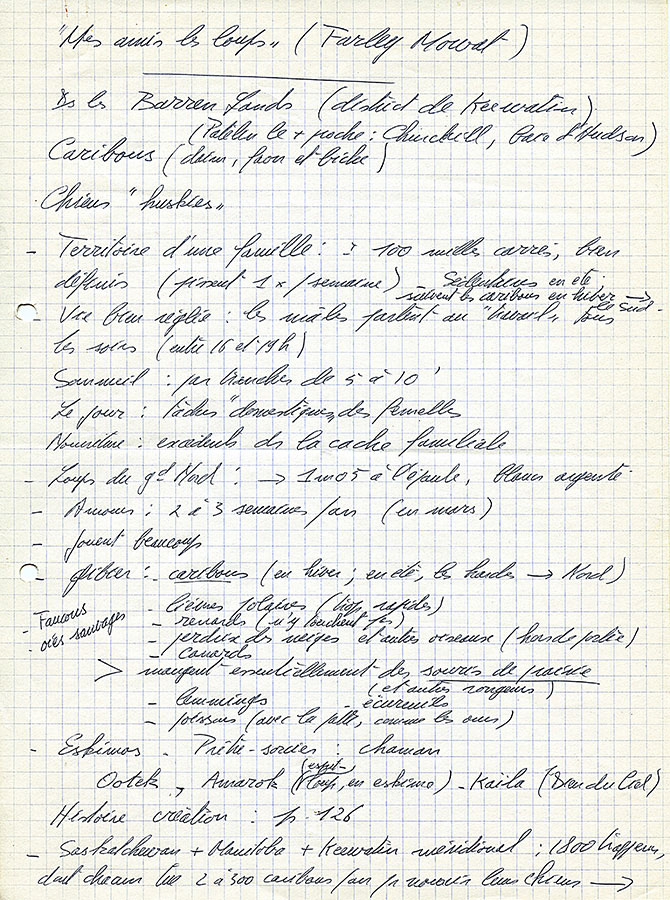 "Mes amis les loups" (Farley Mowat)
Ds les Barren Lands (district de Keewatin)
(Patelin le + proche : Churchill, baie d'Hudson)
Caribous (daim, faon et biche)
Chiens "huskies"
- Territoire d'une famille : ± 100 milles carrés, bien
définis (pissent 1 x / semaine) Sédentaires en été.
suivent les caribous en hiver → le Sud.
- Vie bien réglée : les mâles partent au "travail" tous
les soirs (entre 16 et 19h)
Sommeil : par tranches de 5 à 10'
Le jour : tâches "domestiques" des femelles
Nourriture : excédents ds la cache familiale
- Loups du gd Nord : → 1m05 à l'épaule, blanc argenté
- Amours : 2 à 3 semaines/an (en mars)
- Jouent beaucoup
- Gibier : - caribous (en hiver ; en été, les hardes → Nord)
- Faucons
- oies sauvages
- lièvres polaires (trop rapides)
- renards (n'y touchent pas)
- perdrix des neiges et autres oiseaux (hors de portée)
- canards
> mangent essentiellement des souris de prairie
(et autres rongeurs)
- lemmings - écureuils
- poissons (avec la patte, comme les ours)
- Eskimos - Prêtre-sorcier : chaman
Ootek, Amarok (esprit-loup, en eskimo) - Kaila (Dieu du Ciel)
Histoire création : p. 126
- Saskatchewan + Manitoba + Keewatin méridional : 1800 trappeurs,
dont chacun tue 2 à 300 caribous/an pr nourrir leurs chiens →